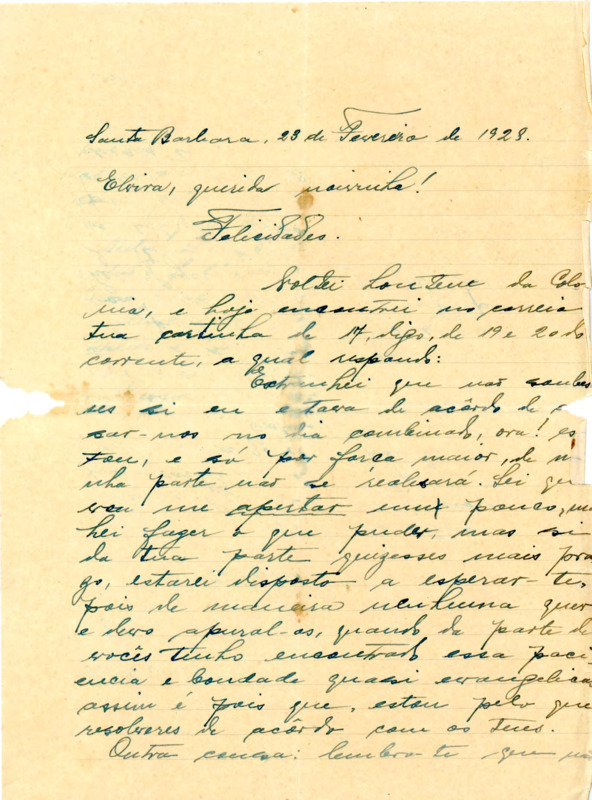 Santa Barbara, 23 de Fevereiro de 1923.
Elvira, querida noivinha!
Felicidades.
Voltei hontem da Colo
nia, e hoje encontrei no correio
tua cartinha de 17, digo, de 19 e 20 do
corrente, a qual respondo:
Extranhei que não soubes
ses si eu estava de acôrdo de c
sar-nos no dia combinado, ora! es
tou, e só por força maior, de m
nha parte não se realisará. Sei que
vou me apertar um pouco, m
hei fazer o que puder, mas si
da tua parte quizesses mais pra
zo, estarei disposto a esperar-te,
pois de maneira nenhuma quer
e devo apural-os, quando da parte de
vocês tenho encontrado essa paci
encia e bondade quasi evangelica,
assim é pois que, estou pelo que
resolveres de acôrdo com os teus.
Outra cousa: lembro-te que não